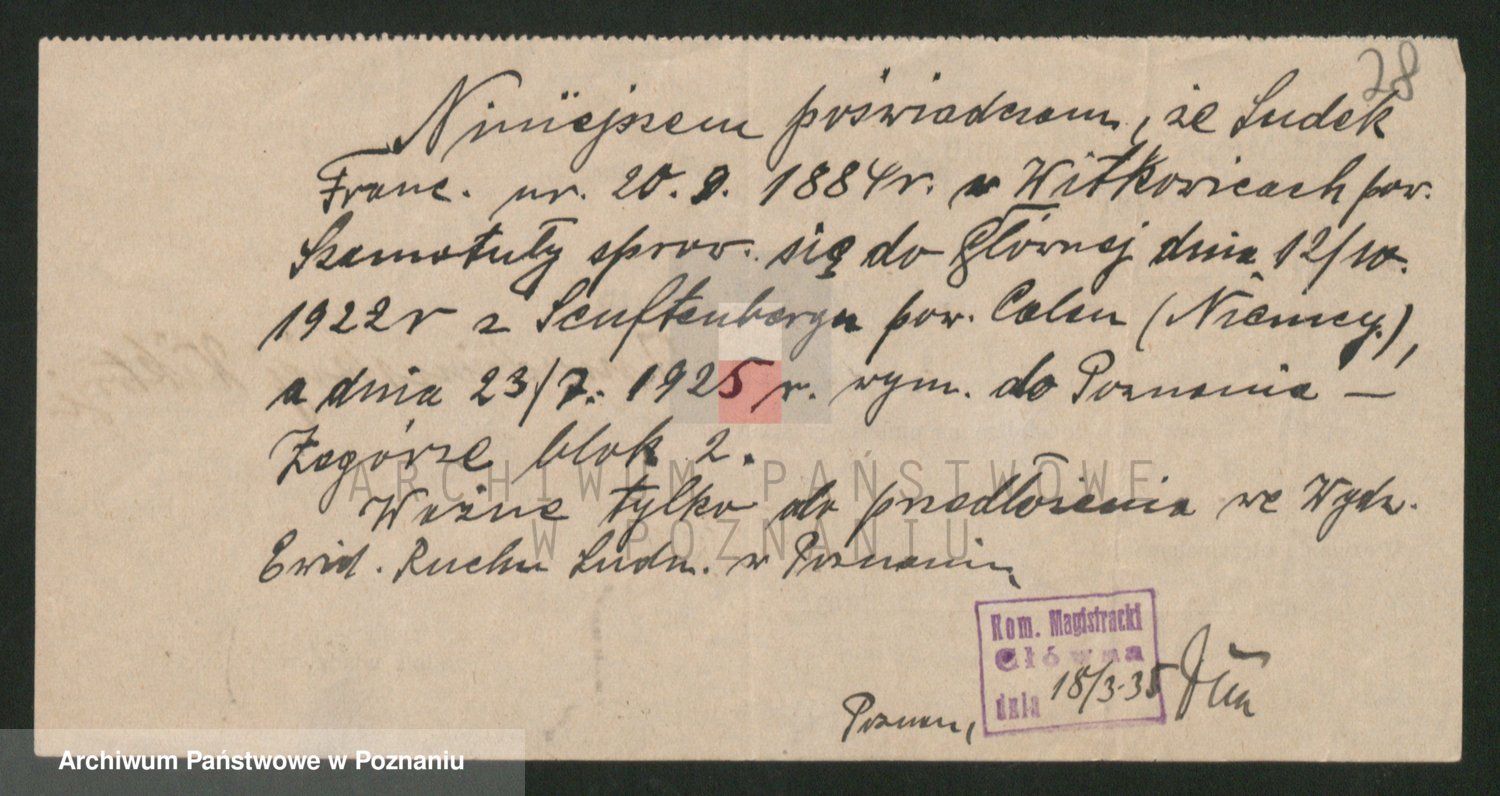 28
Niniejszem poświadczam, że Ludek
Franc. ur. 20.9.1884r. w Witkowicach pow.
Szamotuły sprow. się do Głównej dnia 12/10.
1922r z Senftenbergu pow. Calau (Niemcy.),
a dnia 23/7. 1925 r. wym. do Poznania —
Zagórze blok 2.
Ważne tylko do przedłożenia we Wydz.
Ewid. Ruchu Ludn. w Poznaniu,
Kom. Magistracki
Główna
dnia 18/3.35
Poznań,
ARCHIWUM PAŃSTWOWE
W POZNANIU
Archiwum Państwowe w Poznaniu